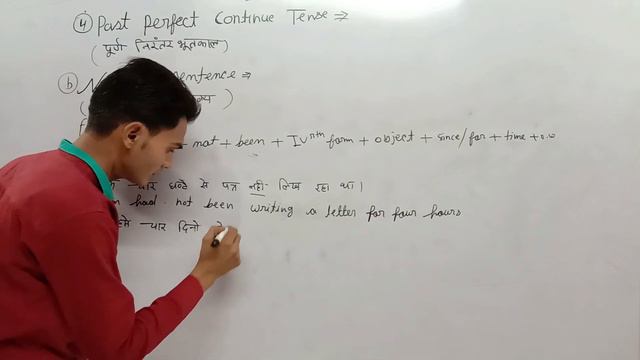 ④ Past Perfect Continue Tense ⇒
( पूर्ण निरंतर भूतकाल )
ⓑ N entence ⇒
)
not + been + IVth form + object + since/for + time + o.w
चार घन्टे से पत्र नही लिख रहा था।
had not been writing a letter for four hours
चार दिनो